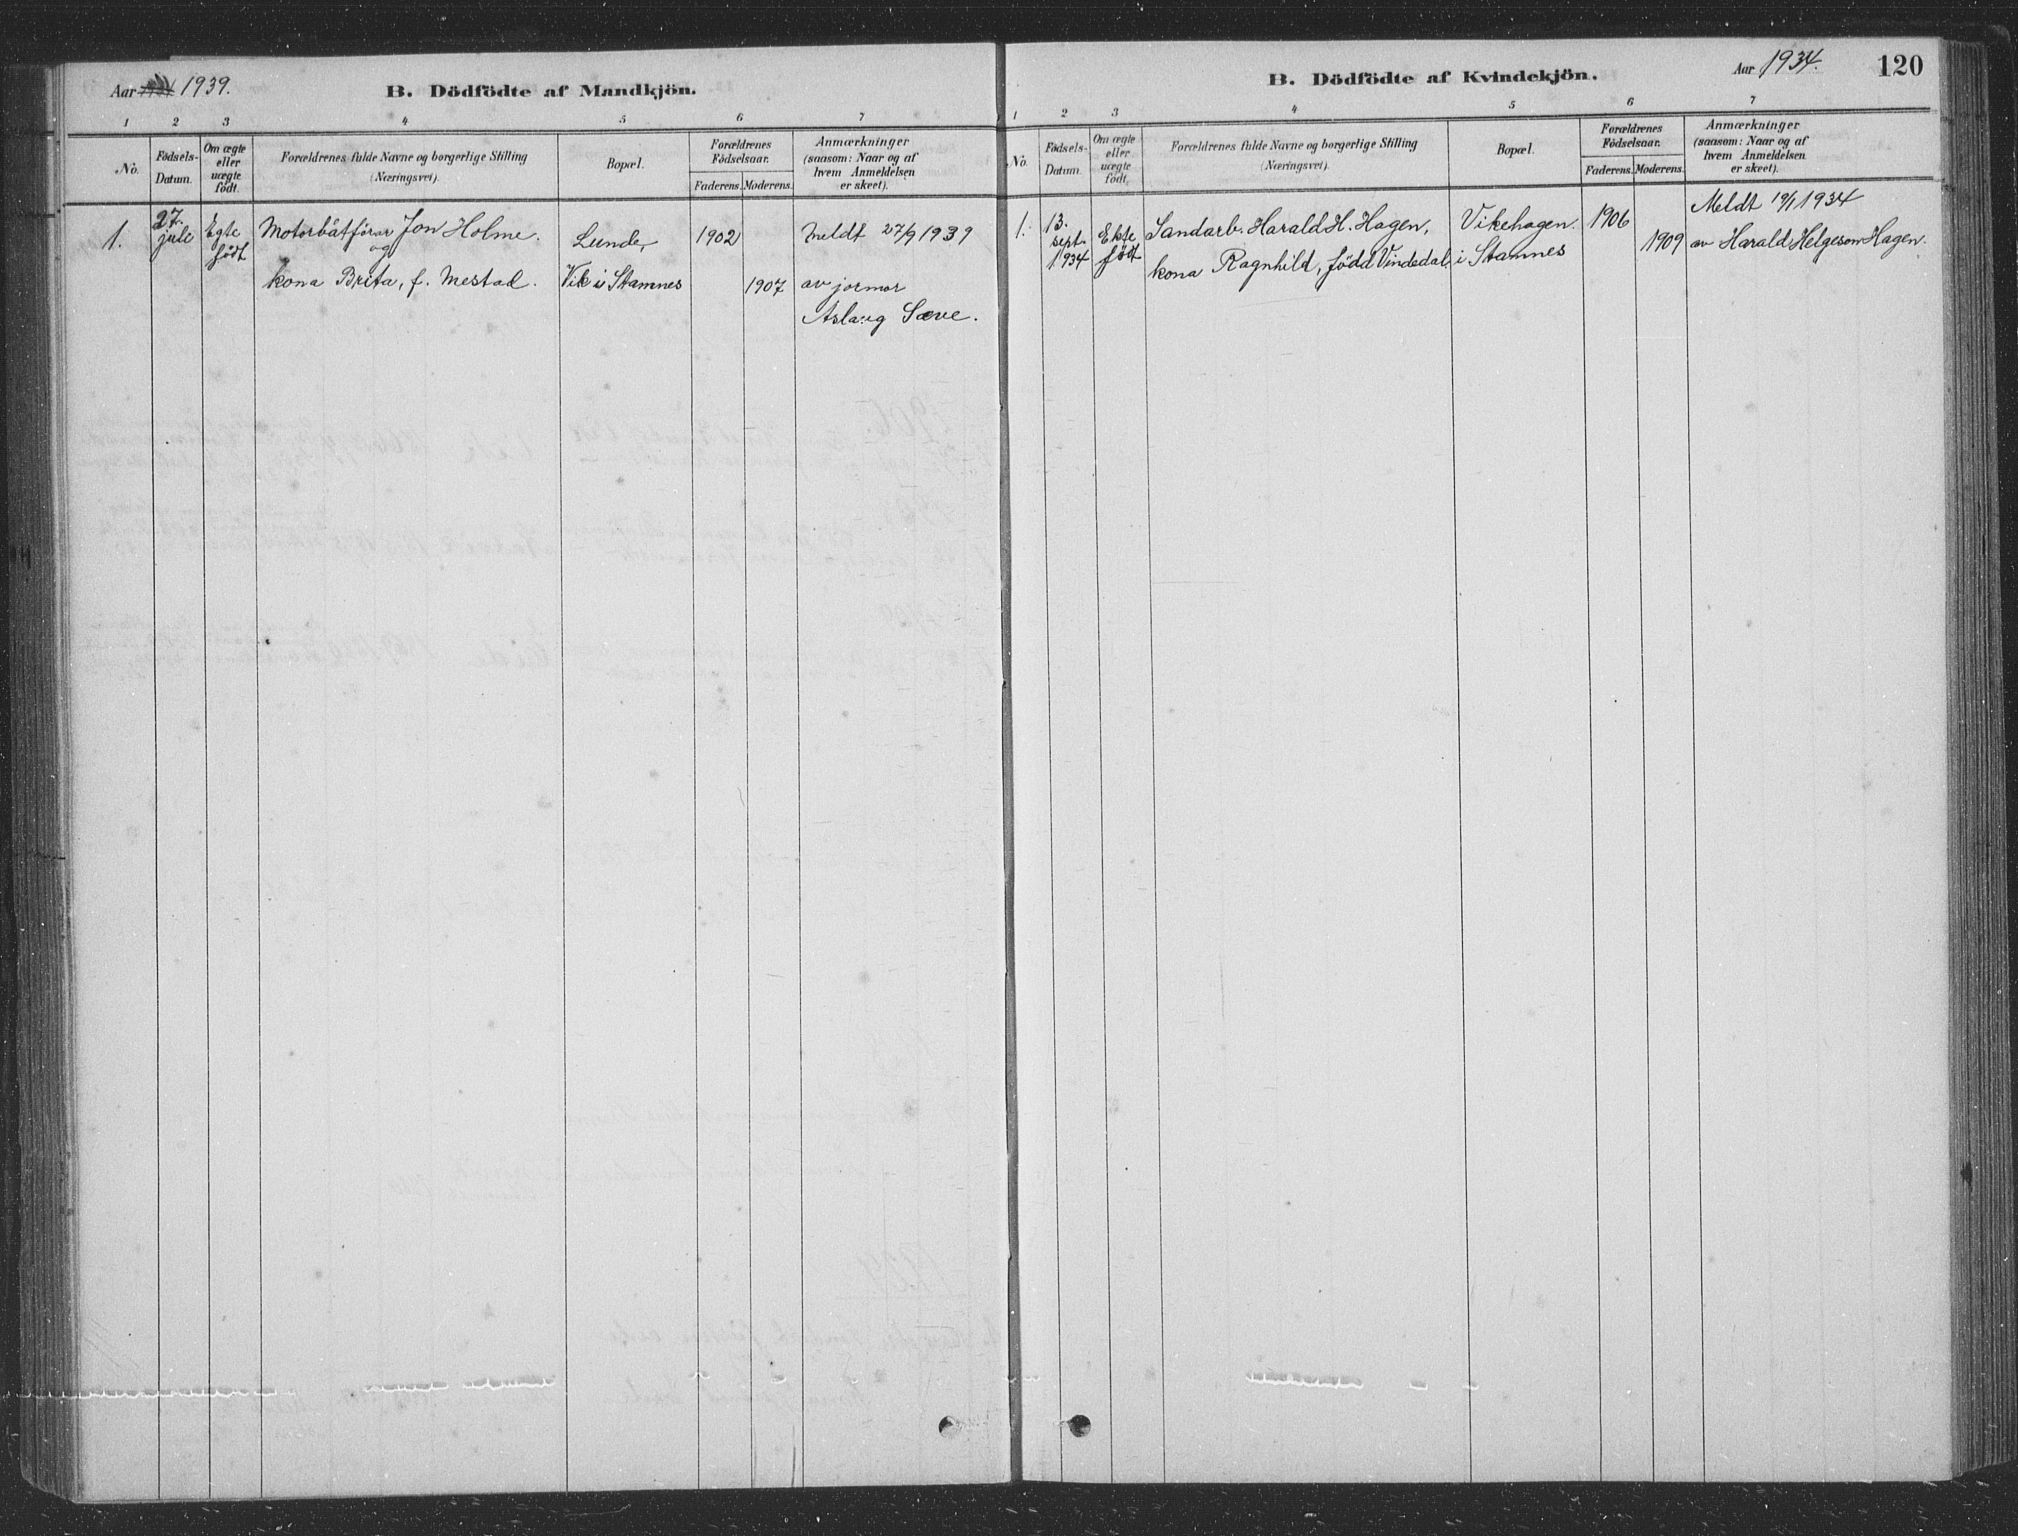 Aar 1939.
B. Dödfödte af Mandkjön.
1 2 3 4 5 6 7
No.
Födsels-
Datum.
Om ægte
eller
uægte
födt.
Forældrenes fulde Navne og borgerlige Stilling
(Næringsvei).
Bopæl.
Forældrenes
Födselsaar.
Faderens. Moderens.
Anmærkninger
(saasom: Naar og af
hvem Anmeldelsen
er skeet).
1. 27. juli Egte født Motorbåtförar Jon Holme. Lunde, 1902 Meldt 27/9 1939
og
kona Brita, f. Mestad. Vik i Stamnes 1907 av jormor
Aslaug Sæve.
B. Dödfödte af Kvindekjön.
Aar 1934.
120
1 2 3 4 5 6 7
No.
Födsels-
Datum.
Om ægte
eller
uægte
födt.
Forældrenes fulde Navne og borgerlige Stilling
(Næringsvei).
Bopæl.
Forældrenes
Födselsaar.
Faderens. Moderens.
Anmærkninger
(saasom: Naar og af
hvem Anmeldelsen
er skeet).
Meldt 1934
1. 13. sept. 1934 Ekte født Sandarb. Harald H. Hagen, Vikehagen. 1906
kona Ragnhild, född Vindedal, i Stamnes 1909 av Harald Helgeson Hagen.